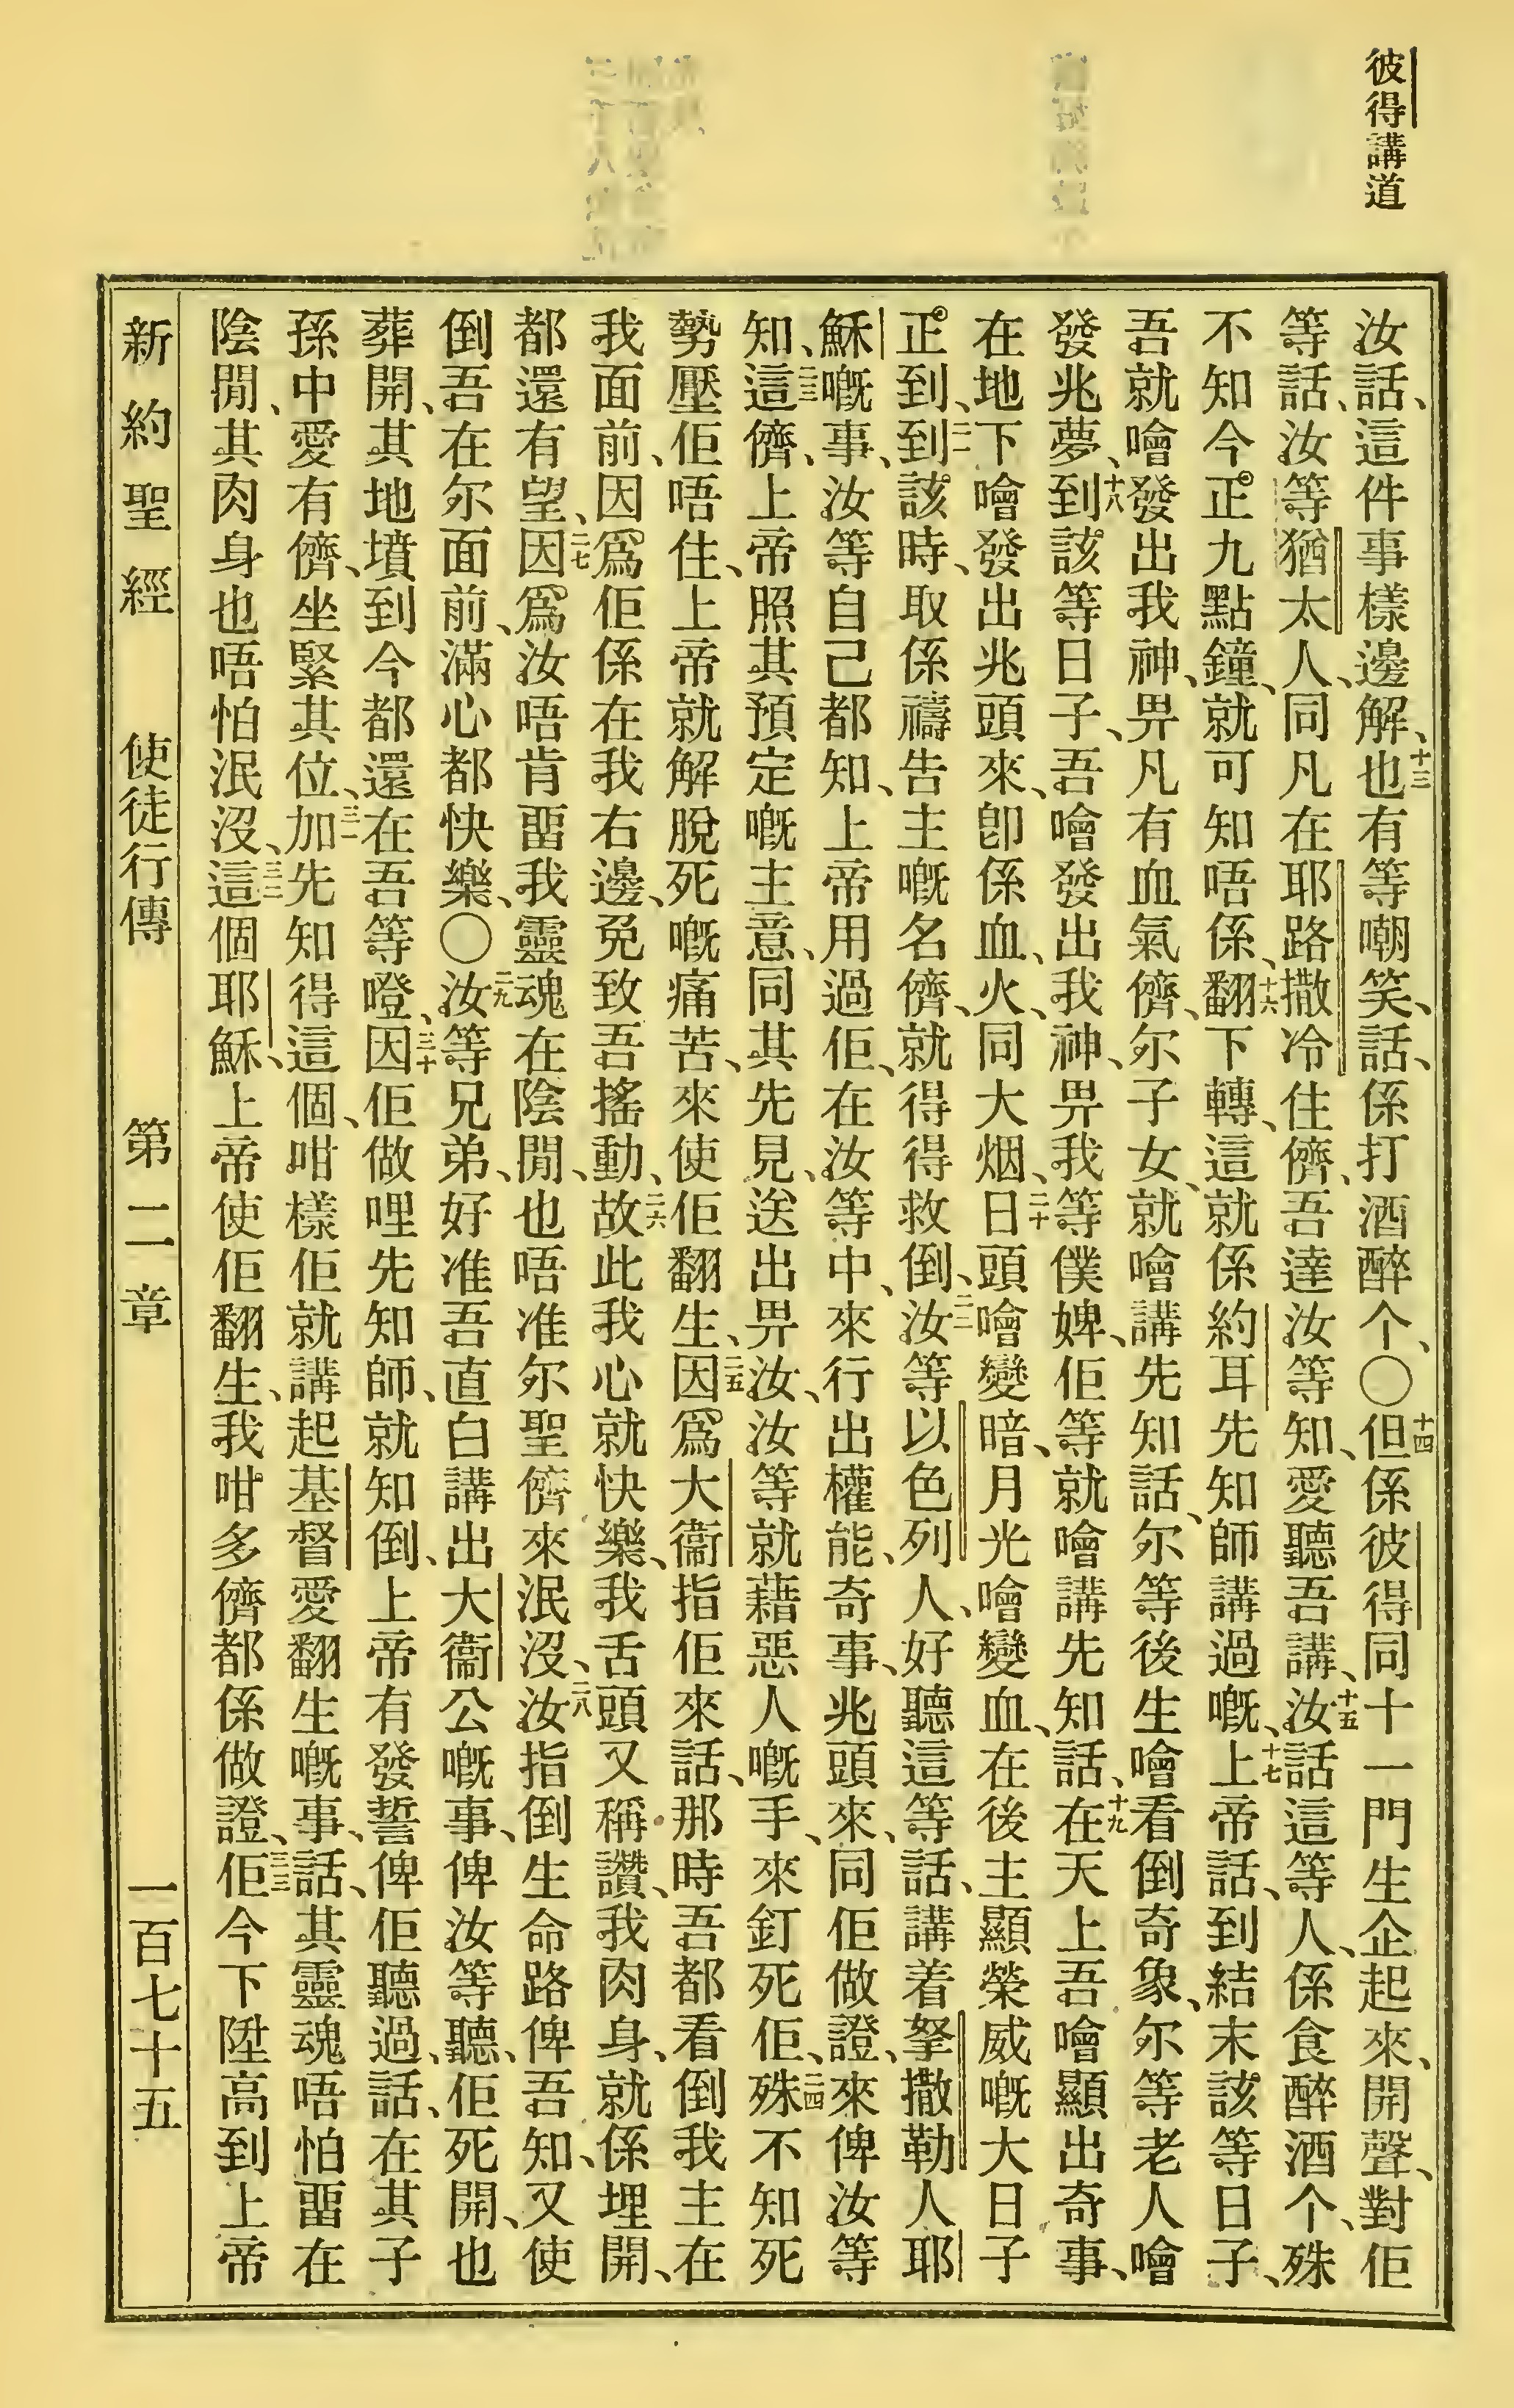 彼得講道
汝話、這件事樣邊解、十三也有等嘲笑、話、係打酒醉个、〇十四但係彼得同十一門生企起來、開聲、對佢
等話、汝等猶太人、同凡在耶路撒冷住儕、吾達汝等知、愛聽吾講、十五汝話這等人、係食醉酒个、殊
不知今正九點鐘、就可知唔係、十六翻下轉、這就係約耳先知師講過嘅、十七上帝話、到結末該等日子、
吾就噲發出我神、畀凡有血氣儕、尔子女、就噲講先知話、尔等後生噲看倒奇象、尔等老人噲
發兆夢、十八到該等日子、吾噲發出我神、畀我等僕婢、佢等就噲講先知話、十九在天上吾噲顯出奇事、
在地下噲發出兆頭來、卽係血、火、同大烟、二十日頭噲變暗、月光噲變血、在後主顯榮威嘅大日子
正到、二一到該時、取係禱告主嘅名儕、就得得救倒、二二汝等以色列人、好聽這等話、講着拏撒勒人耶
穌嘅事、汝等自己都知、上帝用過佢、在汝等中、來行出權能、奇事、兆頭來、同佢做證、來俾汝等
知、二三這儕、上帝照其預定嘅主意、同其先見、送出畀汝、汝等就藉惡人嘅手、來釘死佢、二四殊不知死
勢壓佢唔住、上帝就解脫死嘅痛苦、來使佢翻生、二五因爲大衞指佢來話、那時吾都看倒我主在
我面前、因爲佢係在我右邊、免致吾搖動、二六故此我心就快樂、我舌頭又稱讚、我肉身、就係埋開、
都還有望、二七因爲汝唔肯畱我靈魂在陰閒、也唔准尔聖儕來泯沒、二八汝指倒生命路俾吾知、又使
倒吾在尔面前、滿心都快樂、〇二九汝等兄弟、好准吾直白講出大衞公嘅事、俾汝等聽、佢死開、也
葬開、其地墳到今都還在吾等嶝、三十因佢做哩先知師、就知倒、上帝有發誓俾佢聽過、話、在其子
孫中愛有儕、坐緊其位、三一加先知得這個、咁樣佢就講起基督愛翻生嘅事、話、其靈魂唔怕畱在
陰閒、其肉身也唔怕泯沒、三二這個耶穌、上帝使佢翻生、我咁多儕都係做證、三三佢今下陞高到上帝
新約聖經　使徒行傳　第二章　一百七十五